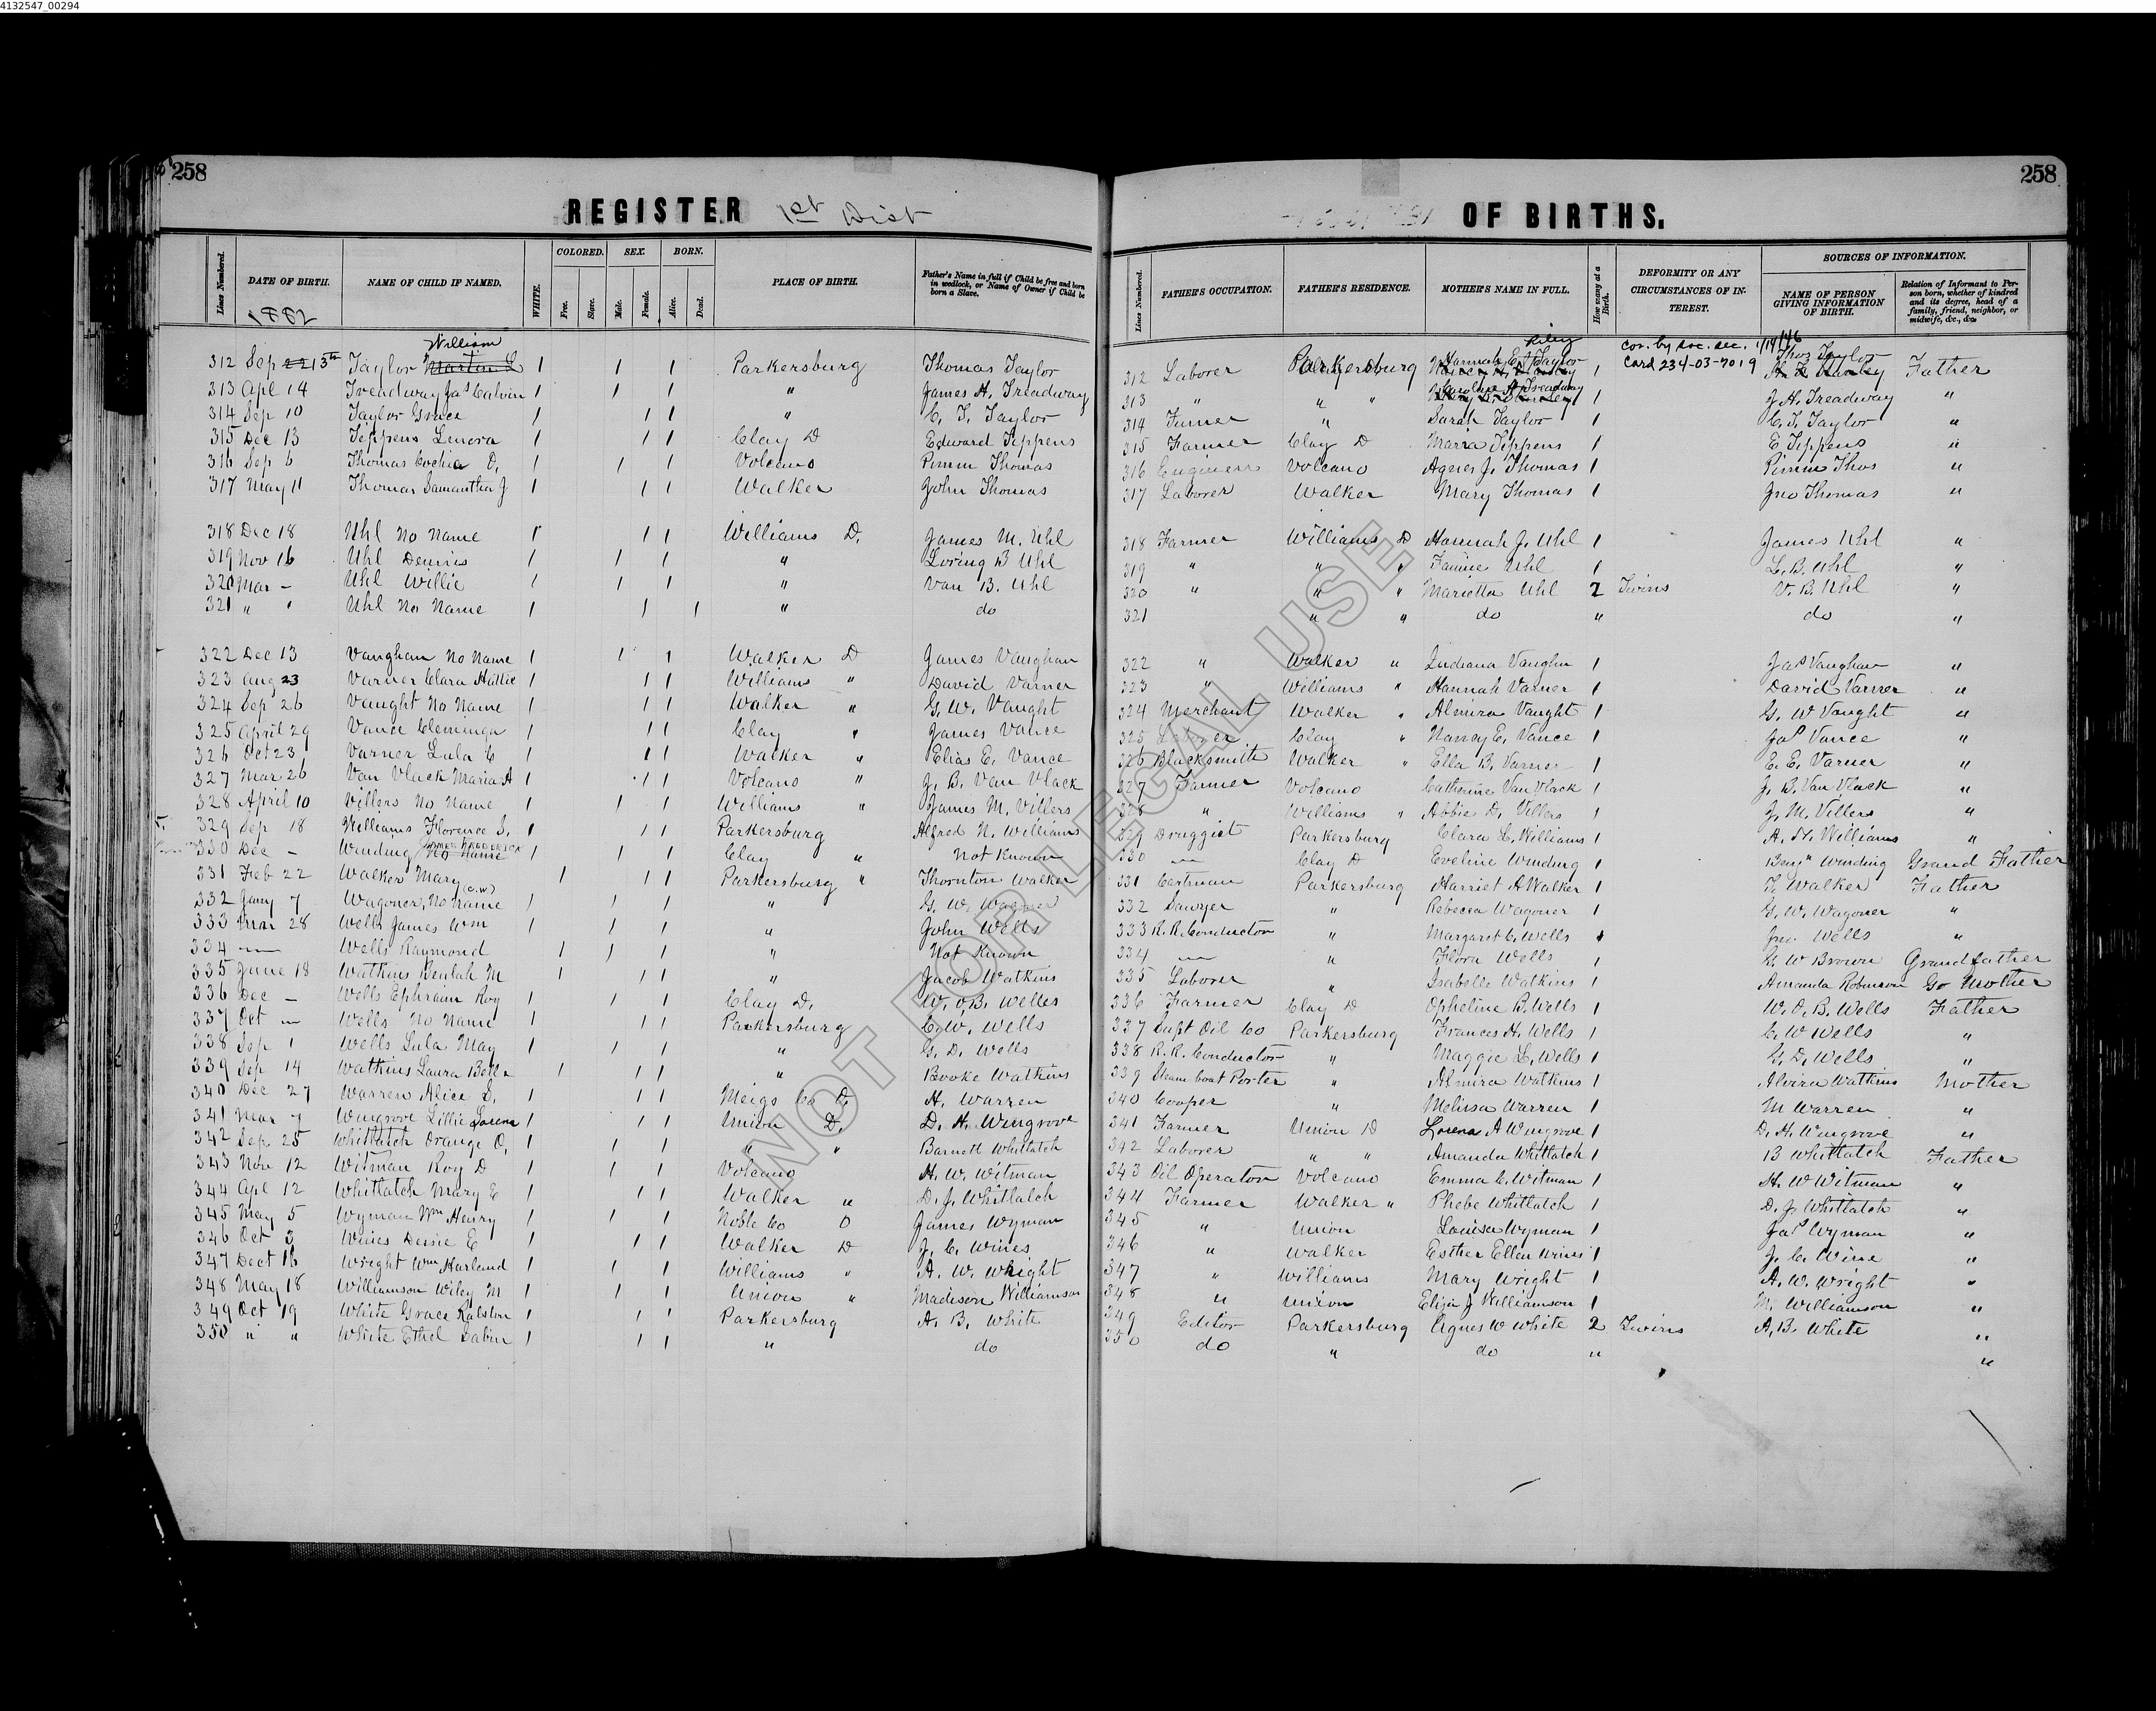 4132547_00294
258
258
REGISTER 1st Dist
OF BIRTHS.
Lines Numbered. DATE OF BIRTH. NAME OF CHILD IF NAMED. WHITE. COLORED. Free. Slave. SEX. Male. Female. BORN. Alive. Dead. PLACE OF BIRTH. Father's Name in full if Child be free and born in wedlock, or Name of Owner if Child be born a Slave.
Lines Numbered. FATHER'S OCCUPATION. FATHER'S RESIDENCE. MOTHER'S NAME IN FULL. How many at a Birth. DEFORMITY OR ANY CIRCUMSTANCES OF INTEREST. SOURCES OF INFORMATION. NAME OF PERSON GIVING INFORMATION OF BIRTH. Relation of Informant to Person born, whether of kindred and its degree, head of a family, friend, neighbor, or midwife, &c., &c.
1882
William
Riley
cor. by soc. sec. 1/14/46
Card 234-03-7019
312 Sep 22 13th Taylor Martin L 1 1 1 Parkersburg Thomas Taylor 312 Laborer Parkersburg Hannah E. Taylor 1 Thos Taylor Father
313 Apl 14 Treadway Jas Calvin 1 1 1 " James H. Treadway 313 " " " Caroline A Treadway 1 J H. Treadway "
314 Sep 10 Taylor Grace 1 1 1 " C. T. Taylor 314 Farmer " Sarah Taylor 1 C. T. Taylor "
315 Dec 13 Teppens Lenora 1 1 1 Clay D Edward Teppens 315 Farmer Clay D Maria Teppens 1 E Teppens "
316 Sep 6 Thomas O. 1 1 1 Volcano Thomas 316 Engineer Volcano Agnes J. Thomas 1 Thos "
317 May 11 Thomas Samantha J 1 1 1 Walker John Thomas 317 Laborer Walker Mary Thomas 1 Jno Thomas "
318 Dec 18 Uhl No Name 1 1 1 Williams D. James M. Uhl 318 Farmer Williams D Hannah J. Uhl 1 James Uhl "
319 Nov 16 Uhl Dennis 1 1 1 " Loring B Uhl 319 " " " Fannie Uhl 1 L. B. Uhl "
320 Mar - Uhl Willie 1 1 1 " Van B. Uhl 320 " " " Marietta Uhl 2 Twins V. B. Uhl "
321 " " Uhl No Name 1 1 1 " do 321 " " do " do "
322 Dec 13 Vaughan No Name 1 1 1 Walker D James Vaughan 322 " Walker " Indiana Vaughn 1 Jas Vaughan "
323 Aug 23 Varner Clara Hattie 1 1 1 Williams " David Varner 323 " Williams " Hannah Varner 1 David Varner "
324 Sep 26 Vaught No Name 1 1 1 Walker " G. W. Vaught 324 Merchant Walker " Almira Vaught 1 G. W Vaught "
325 April 29 Vance Cleminga 1 1 1 Clay " James Vance 325 Laborer Clay " Nancy E. Vance 1 Jas Vance "
326 Oct 23 Varner Lula E 1 1 1 Walker " Elias E. Vance 326 Blacksmith Walker " Ella B. Varner 1 E. E. Varner "
327 Mar 26 Van Vlack Maria A 1 1 1 Volcano " J. B. Van Vlack 327 Farmer Volcano Catherine Van Vlack 1 J. B. Van Vlack "
328 April 10 Villers No Name 1 1 1 Williams " James M. Villers 328 " Williams " Abbie D. Villers 1 J. M. Villers "
329 Sep 18 Williams Florence I. 1 1 1 Parkersburg Alfred N. Williams 329 Druggist Parkersburg Clara L. Williams 1 A. N. Williams "
330 Dec - Winding No Name FREDERICK 1 1 1 Clay " Not Known 330 — Clay D Eveline Winding 1 Benjn Winding Grand Father
331 Feb 22 Walker Mary (c.w) 1 1 1 Parkersburg " Thornton Walker 331 Cartman Parkersburg Harriet A Walker 1 T. Walker Father
332 Jany 7 Wagoner, No Name 1 1 1 " G. W. Wagoner 332 Sawyer " Rebecca Wagoner 1 G. W. Wagoner "
333 Mar 28 Wells James Wm 1 1 1 " John Wells 333 R. R. Conductor " Margaret C. Wells 1 Jno. Wells "
334 — Wells Raymond 1 1 1 " Not Known 334 — " Flora Wells 1 G. W Brown Grandfather
335 June 18 Watkins Beulah M 1 1 1 " Jacob Watkins 335 Laborer " Isabelle Watkins 1 Amanda Robinson Gr Mother
336 Dec - Wells Ephraim Roy 1 1 1 Clay D. W. O. B. Welles 336 Farmer Clay D Opheline B. Wells 1 W. O. B. Wells Father
337 Oct — Wells No Name 1 1 1 Parkersburg C. W. Wells 337 Supt Oil Co Parkersburg Frances H. Wells 1 C. W Wells "
338 Sep 1 Wells Lula May 1 1 1 " G. D. Wells 338 R. R. Conductor " Maggie L. Wells 1 G. D. Wells "
339 Sep 14 Watkins Laura Bell 1 1 1 " Booke Watkins 339 Steam boat Porter " Almira Watkins 1 Alvira Watkins Mother
340 Dec 27 Warren Alice S. 1 1 1 Meigs Co O. H. Warren 340 Cooper " Melissa Warren 1 M Warren "
341 Mar 7 Wingrove Lillie Lorena 1 1 1 Union D. D. H. Wingrove 341 Farmer Union D Lorena A Wingrove 1 D. H. Wingrove "
342 Sep 25 Whitlatch Orange O. 1 1 1 " " Barnett Whitlatch 342 Laborer " " Amanda Whitlatch 1 B Whitlatch Father
343 Nov 12 Witman Roy D 1 1 1 Volcano H. W. Witman 343 Oil Operator Volcano Emma C. Witman 1 H. W Witman "
344 Apl 12 Whitlatch Mary E 1 1 1 Walker " D. J. Whitlatch 344 Farmer Walker " Phebe Whitlatch 1 D. J. Whitlatch "
345 May 5 Wyman Wm Henry 1 1 1 Noble Co O James Wyman 345 " Union Louisa Wyman 1 Jas Wyman "
346 Oct 3 Wines Dessie E 1 1 1 Walker D J. C. Wines 346 " Walker Esther Ellen Wines 1 J. C. Wine "
347 Dect 16 Wright Wm Harland 1 1 1 Williams " A. W. Wright 347 " Williams Mary Wright 1 A. W. Wright "
348 May 18 Williamson Wiley M 1 1 1 Union " Madison Williamson 348 " Union Eliza J Williamson 1 M. Williamson "
349 Oct 19 White Grace Ralston 1 1 1 Parkersburg A. B. White 349 Editor Parkersburg Agnes W White 2 Twins A. B. White "
350 " " White Ethel Sabin 1 1 1 " do 350 do " do " "
NOT FOR LEGAL USE